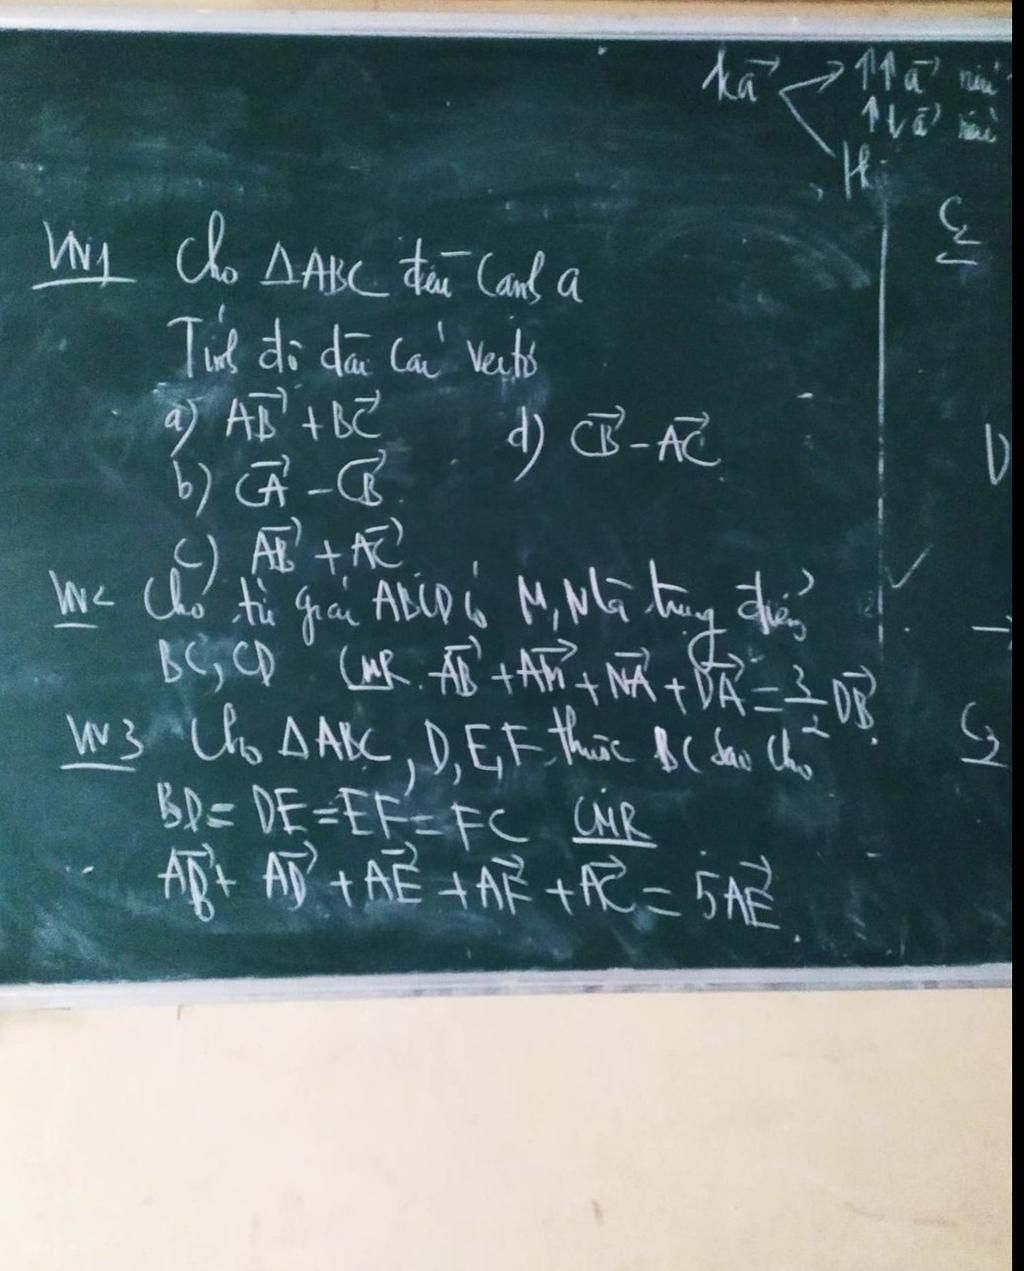 ka⃗ ↑↑ a⃗ nếu
↑↓ a⃗ nếu
VN1 Cho ΔABC đều cạnh a
Tính độ dài các vectơ
a) AB⃗ + BC⃗ d) CB⃗ - AC⃗
b) CA⃗ - CB⃗
c) AB⃗ + AC⃗
VN2 Cho tứ giác ABCD có M, N là trung điểm
BC, CD CMR. AB⃗ + AM⃗ + NA⃗ + DA⃗ = 3/2 DB⃗.
VN3 Cho ΔABC, D, E, F thuộc BC sao cho
BD = DE = EF = FC CMR
AB⃗ + AD⃗ + AE⃗ + AF⃗ + AC⃗ = 5AE⃗.